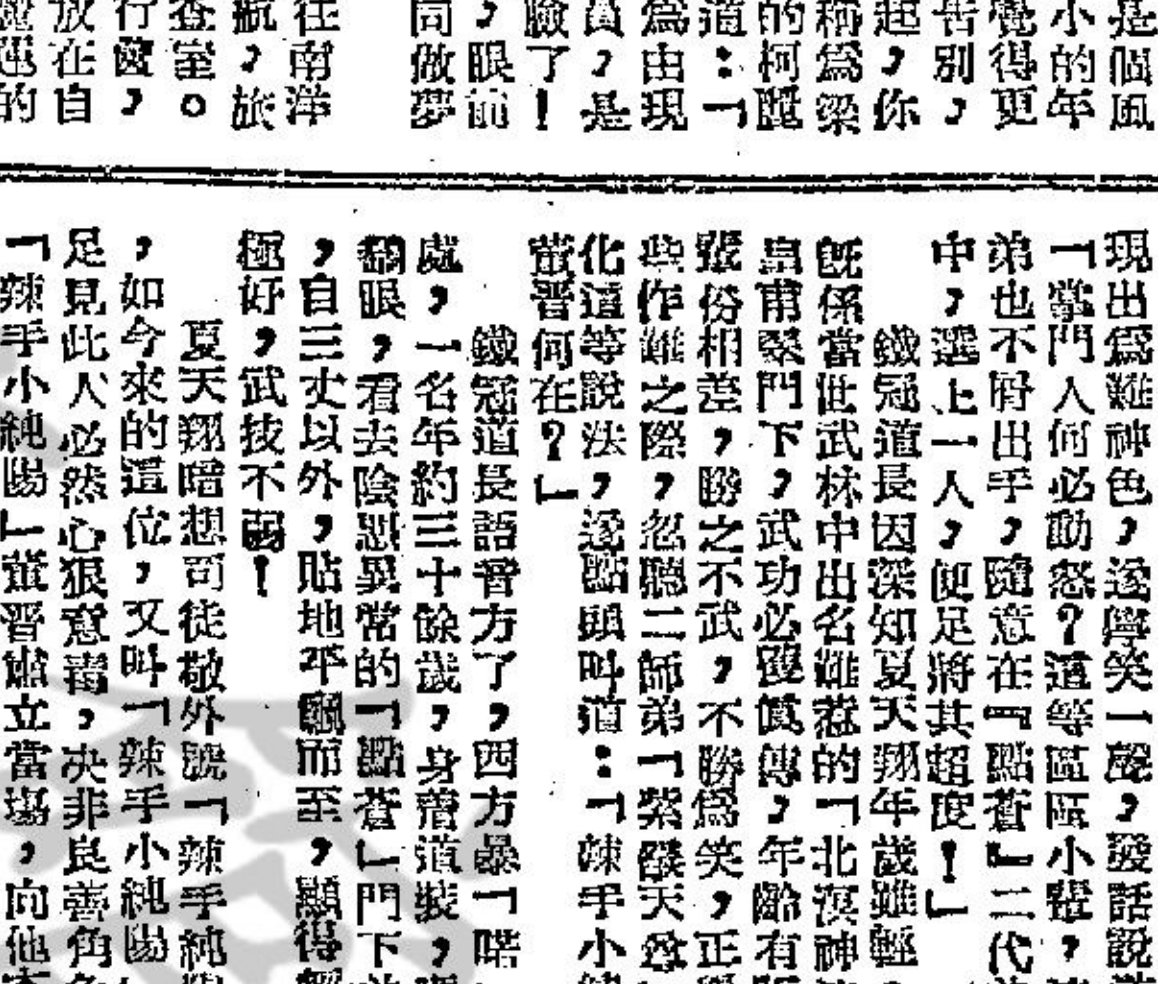 是個風
小的年
覺得更
告別,
起,你
稱爲梁
的柯
道:「
爲由現
員,是
臉了!
,眼前
同做夢
往南洋
航,旅
查室。
行囊,
放在自
的
現出爲難神色,遂學笑一聲,發話說道
「掌門人何必動怒?這等區區小輩,
弟也不屑出手,隨意在『點蒼』二代
中,選上一人,便足將其超度!」
鐵冠道長因深知夏天翔年歲雖輕
旣係當世武林中出名難惹的「北溟神
皇甫翠門下,武功必獲眞傳,年齡有
張份相差,勝之不武,不勝爲笑,正
些作難之際,忽聽二師弟「紫髮天尊
化這等說法,遂點頭叫道:「辣手小純
董晋何在?」
鐵冠道長語音方了,西方暴「喏
處,一名年約三十餘歲,身着道裝,
眼,看去陰惡異常的「點蒼」門下
,自三丈以外,貼地平飄而至,顯得輕
極好,武技不弱!
夏天翔暗想司徒敬外號「辣手純陽
,如今來的這位,又叫「辣手小純陽
足見此人必然心狠意毒,决非良善角色
「辣手小純陽」董晋肅立當場,向他